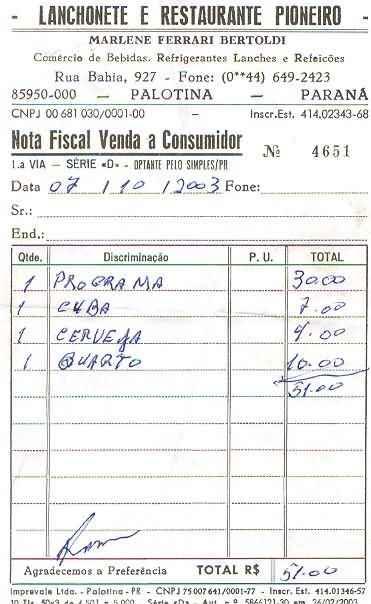 - LANCHONETE E RESTAURANTE PIONEIRO -
MARLENE FERRARI BERTOLDI
Comércio de Bebidas, Refrigerantes Lanches e Refeições
Rua Bahia, 927 - Fone: (0**44) 649-2423
85950-000 — PALOTINA — PARANÁ
CNPJ 00 681 030/0001-00 - Inscr.Est. 414.02343-68
Nota Fiscal Venda a Consumidor Nº 4651
1.a VIA — SÉRIE «D» - OPTANTE PELO SIMPLES/PR
Data 07 / 10 / 2003 Fone:
Sr.:
End.:
Qtde. Discriminação P. U. TOTAL
1 PROGRAMA 30.00
1 CUBA 7.00
1 CERVEJA 4.00
1 QUARTO 10.00
51.00
Agradecemos a Preferência TOTAL R$ 51.00
Imprevale Ltda. - Palotina - PR - CNPJ 75 007 641/0001-77 - Inscr. Est. 414.01346-57
10 Tls. 50x3 de 4.501 a 5.000 Série «D» - Aut. n.º 5846121-90 em 26/02/2003